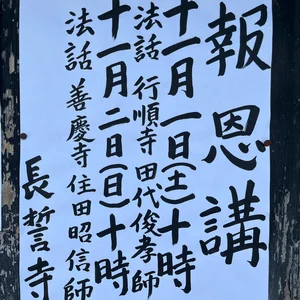 報恩講
十一月一日(土)十時
法話 行順寺 田代俊孝師
十一月二日(日)十時
法話 善慶寺 住田昭信師
長誓寺